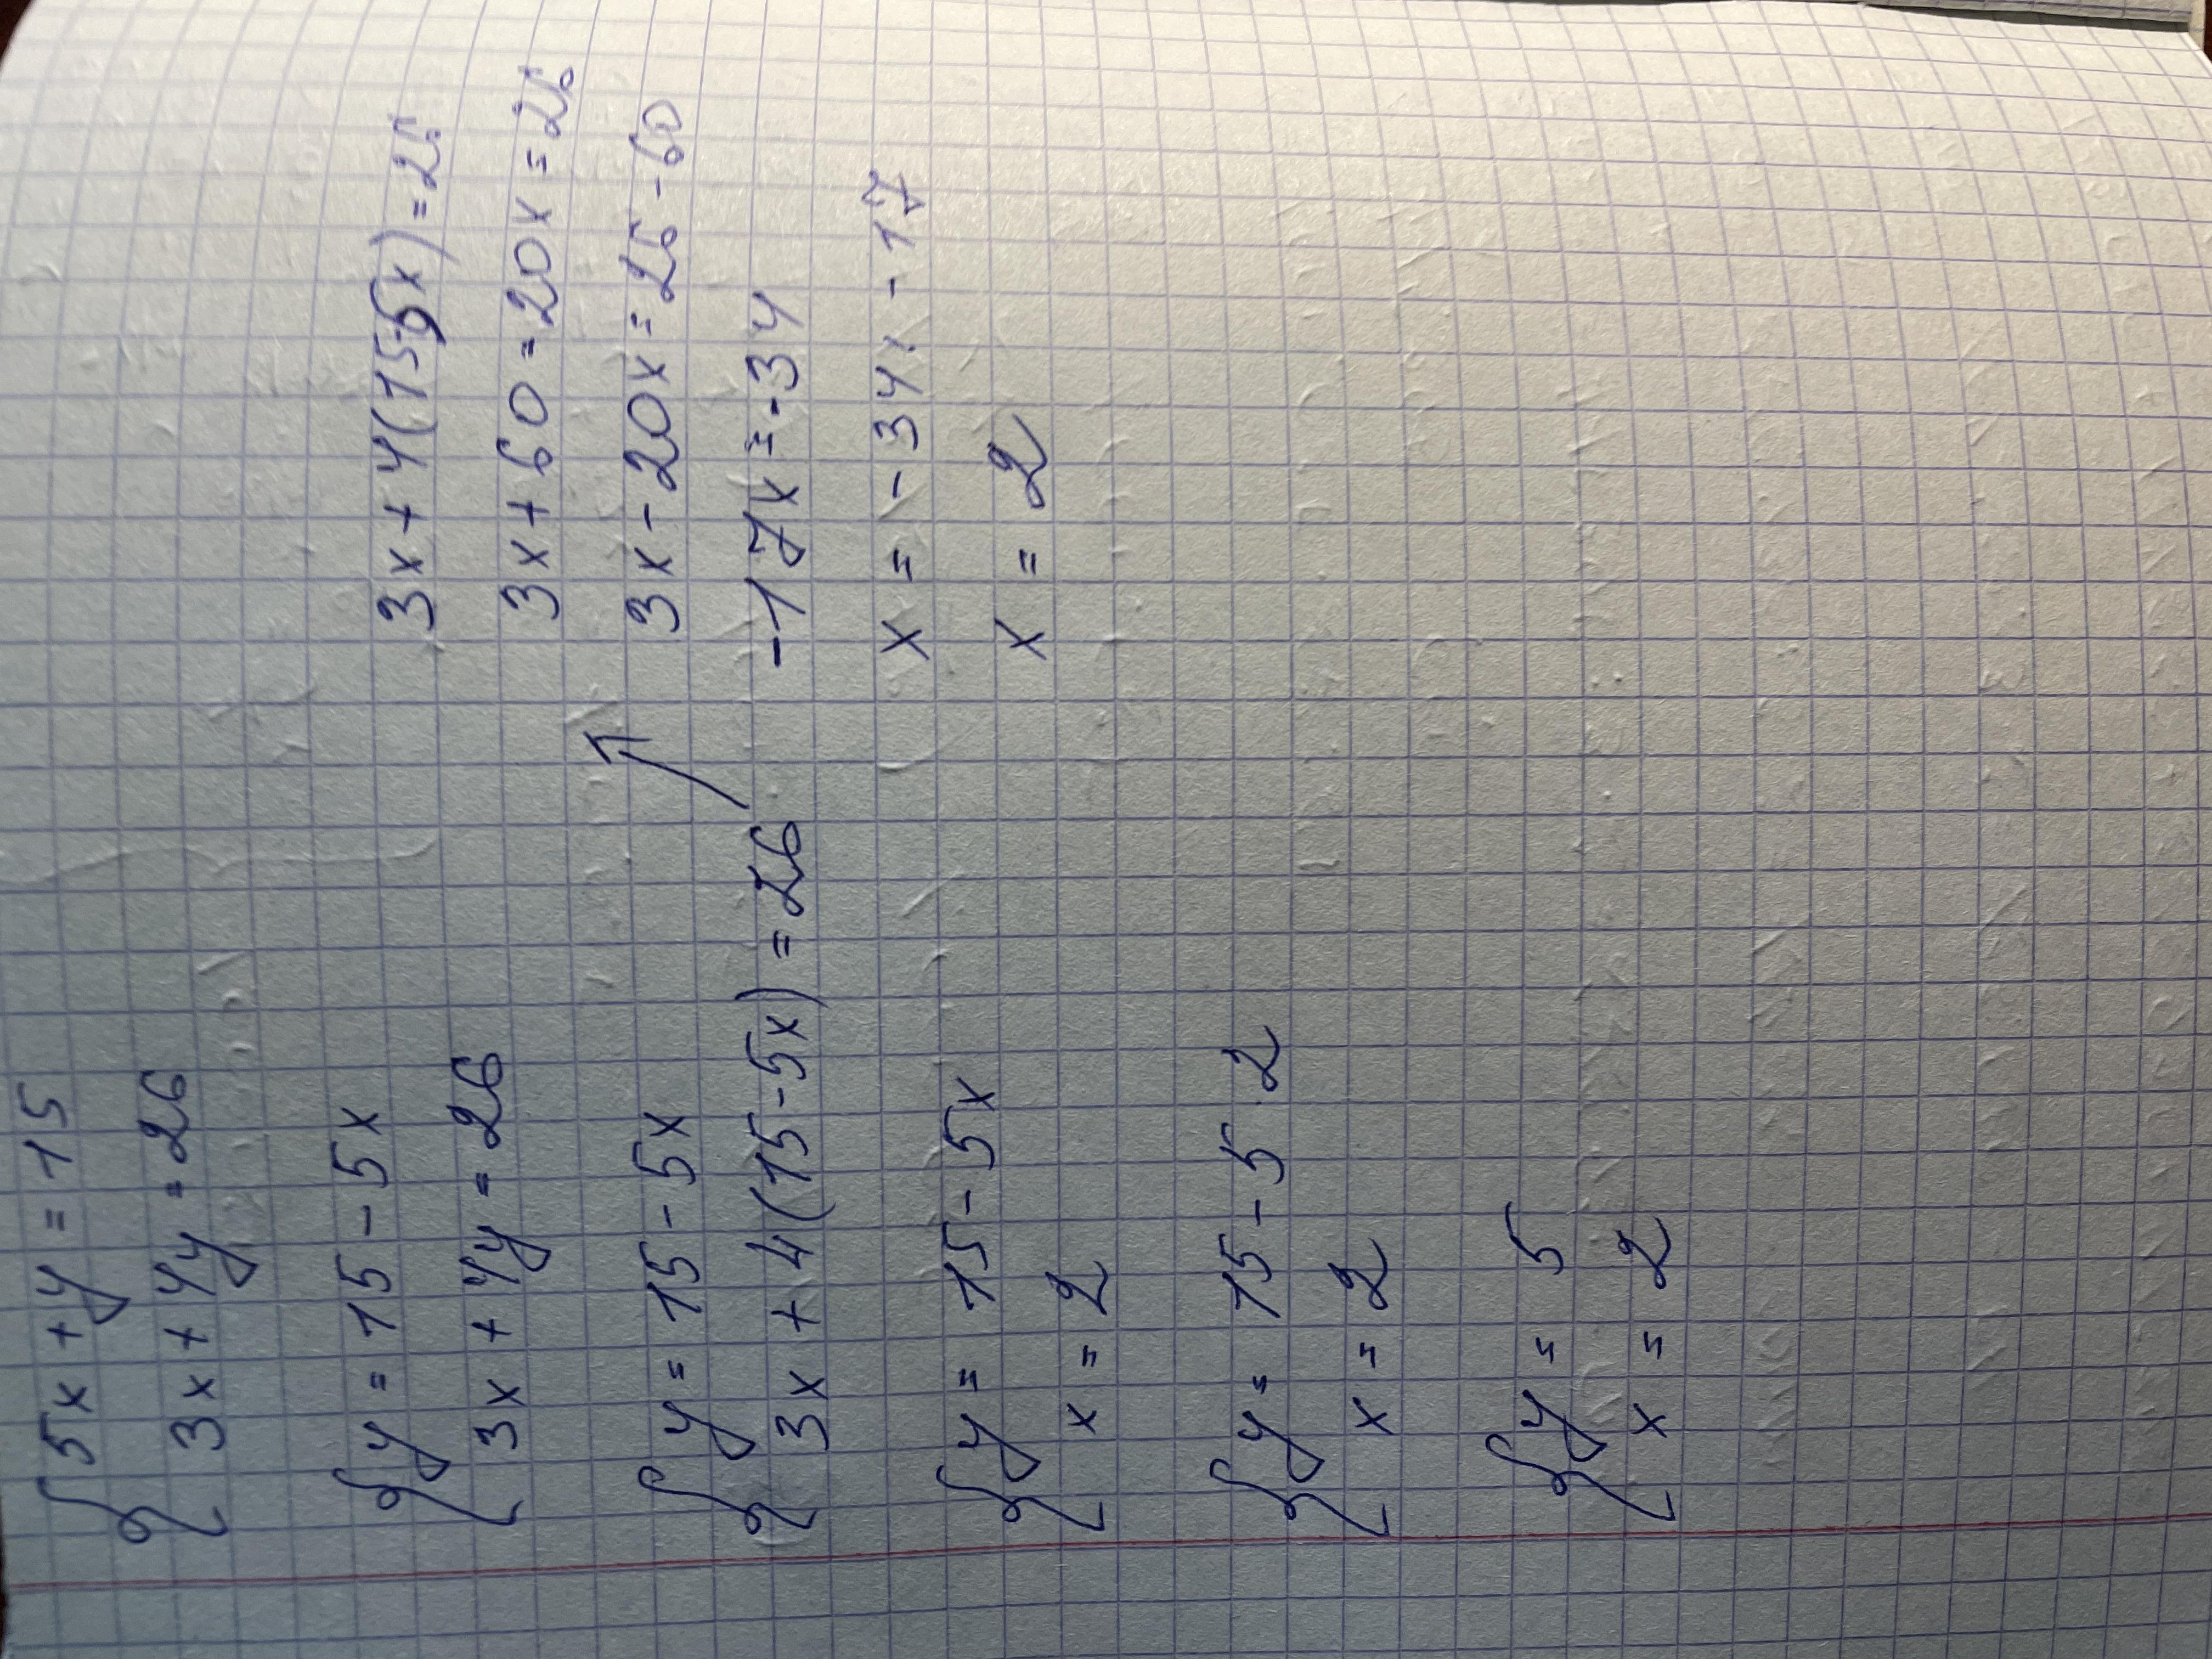 5x + y = 15
3x + 4y = 26
y = 15 - 5x
3x + 4y = 26
y = 15 - 5x
3x + 4(15 - 5x) = 26
y = 15 - 5x
x = 2
y = 15 - 5 · 2
x = 2
y = 5
x = 2
3x + 4(15-5x) = 26
3x + 60 = 20x = 26
3x - 20x = 26 - 60
-17x = -34
x = -34 : -17
x = 2